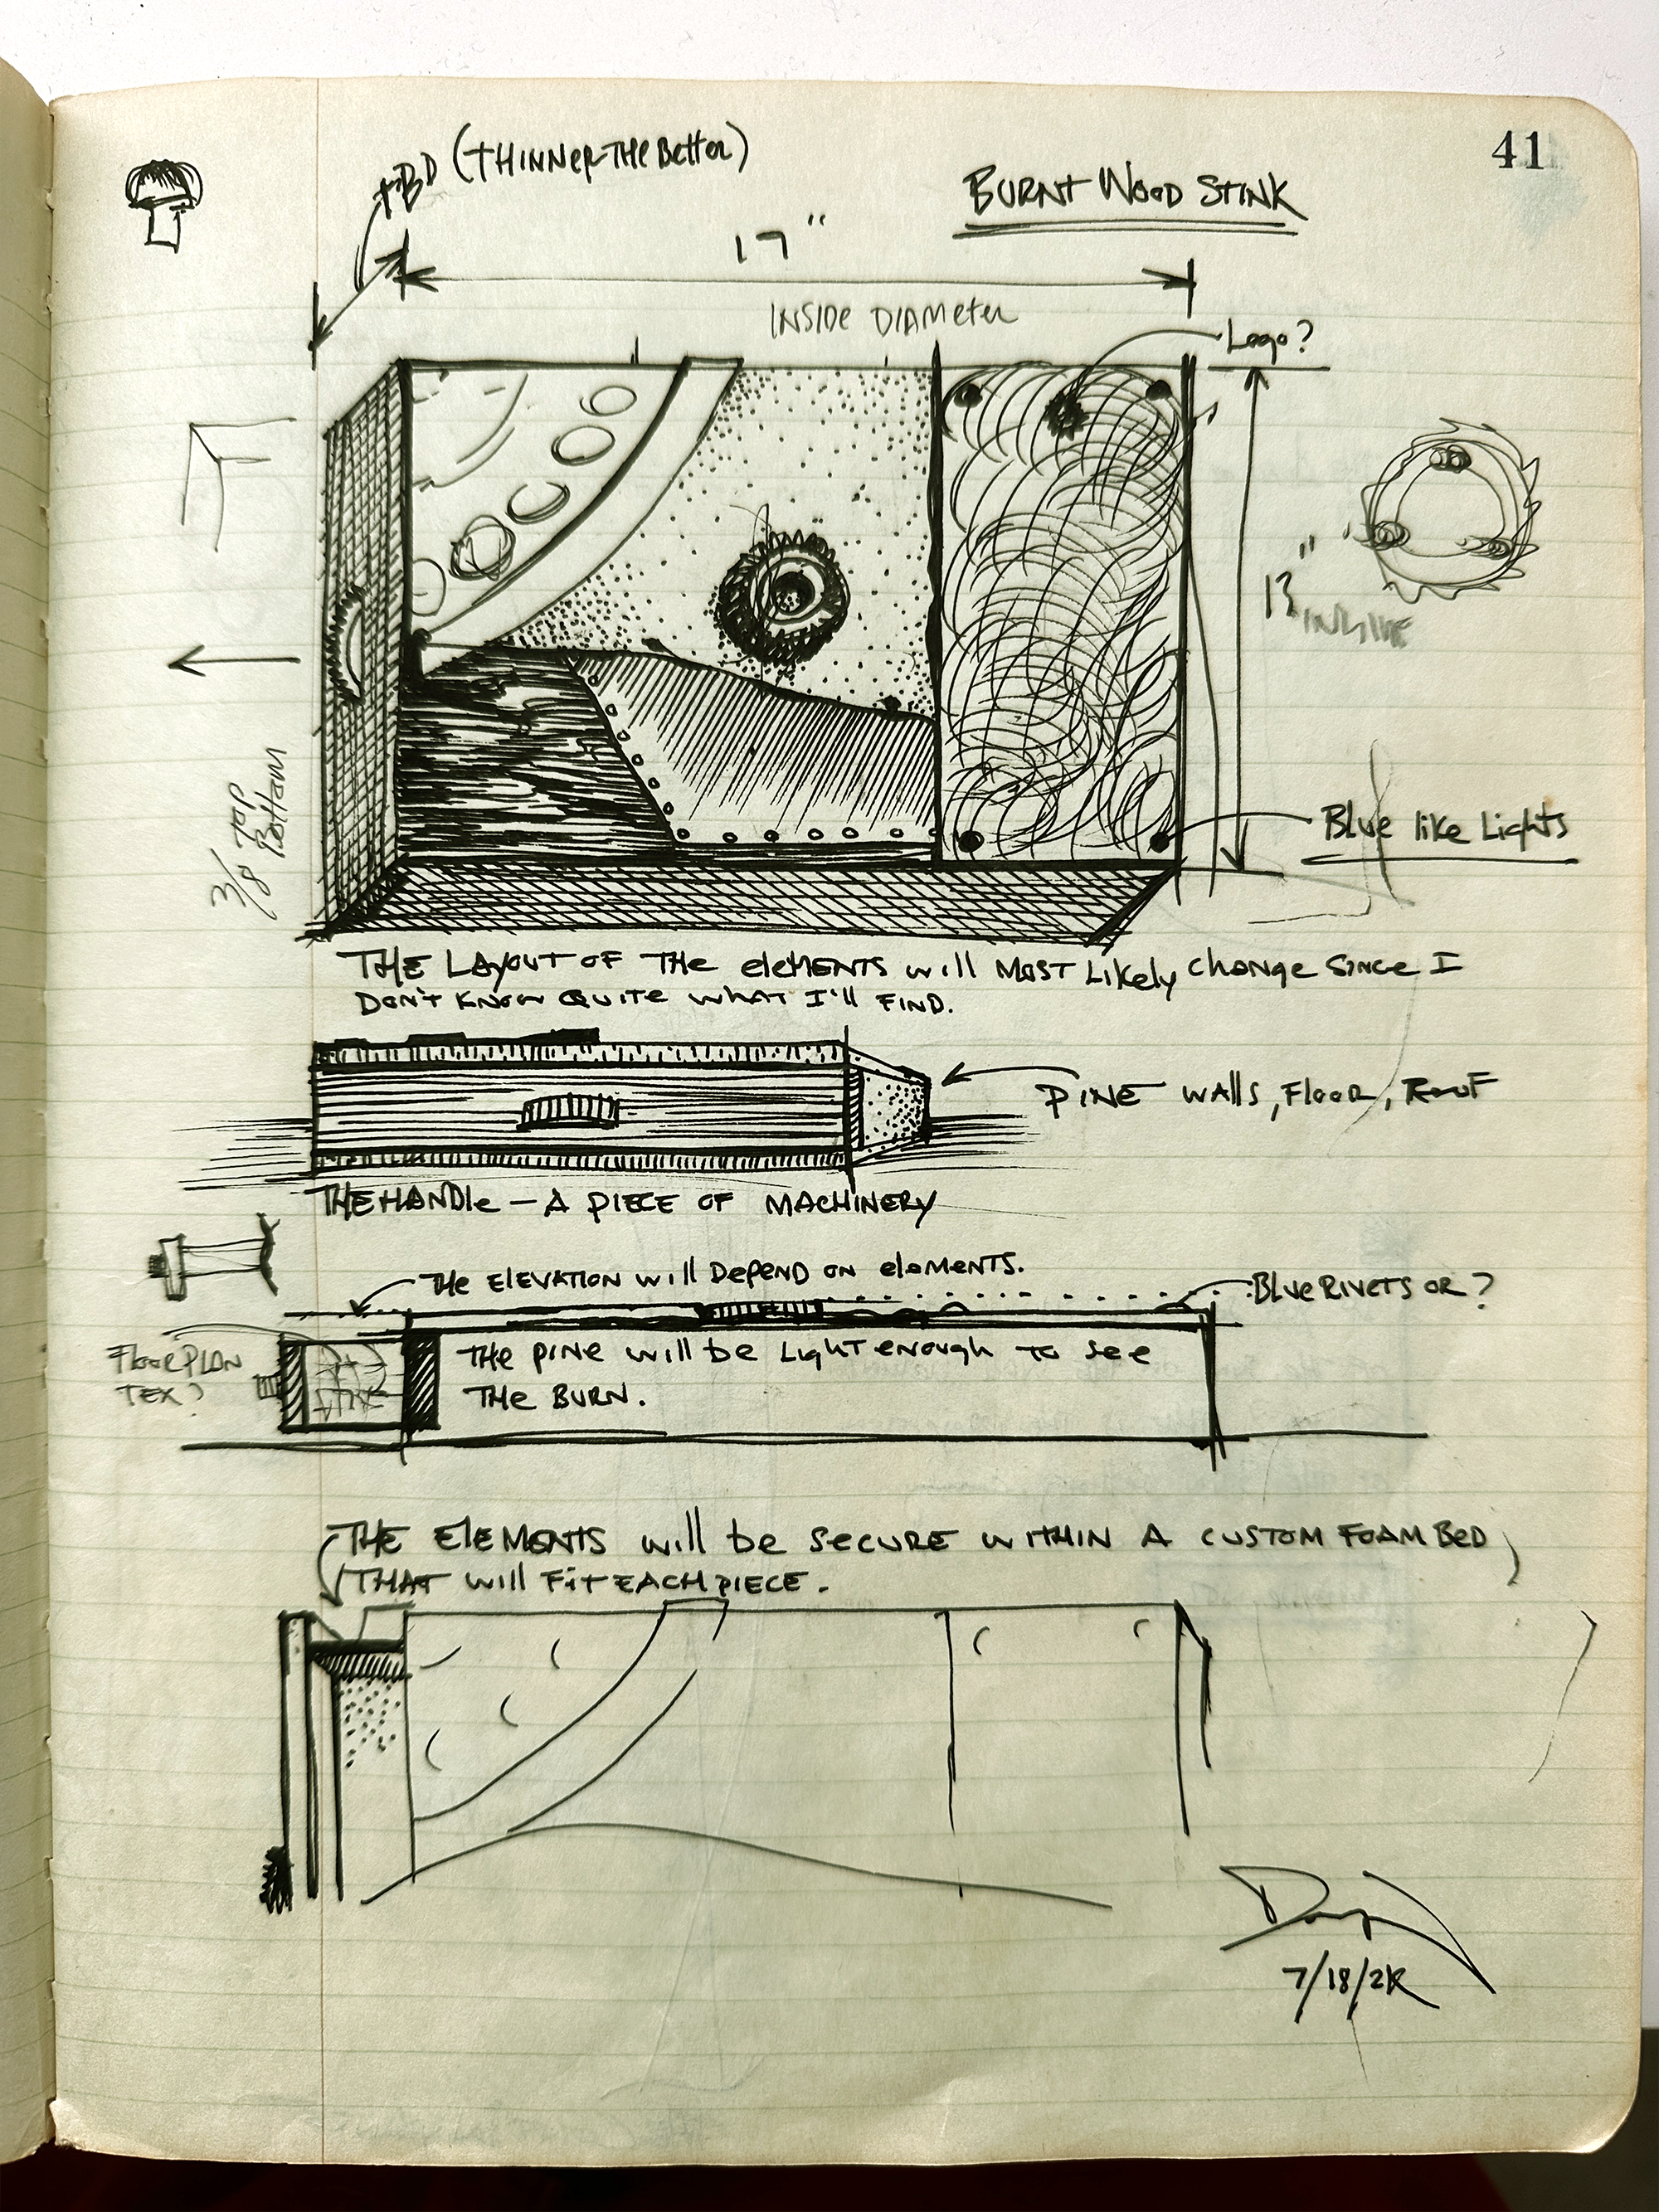 41
TBD (THINNER-THE Better)
BURNT WOOD STINK
17"
INSIDE DIAMETER
Logo?
13"
INSIDE
3/8 TOP
Bottom
Blue like Lights
THE LAYOUT OF THE elements will MOST Likely change SINCE I
DON'T KNOW QUITE WHAT I'll FIND.
PINE WALLS, FLOOR, ROOF
THE HANDLE – A PIECE OF MACHINERY
THE ELEVATION will DEPEND ON elements.
BLUE RIVETS OR ?
FLOOR PLAN
TEX?
THE PINE will be LIGHT enough to see
THE BURN.
THE ELEMENTS will be SECURE WITHIN A CUSTOM FOAM BED
THAT will FIT EACH PIECE.
7/18/2K